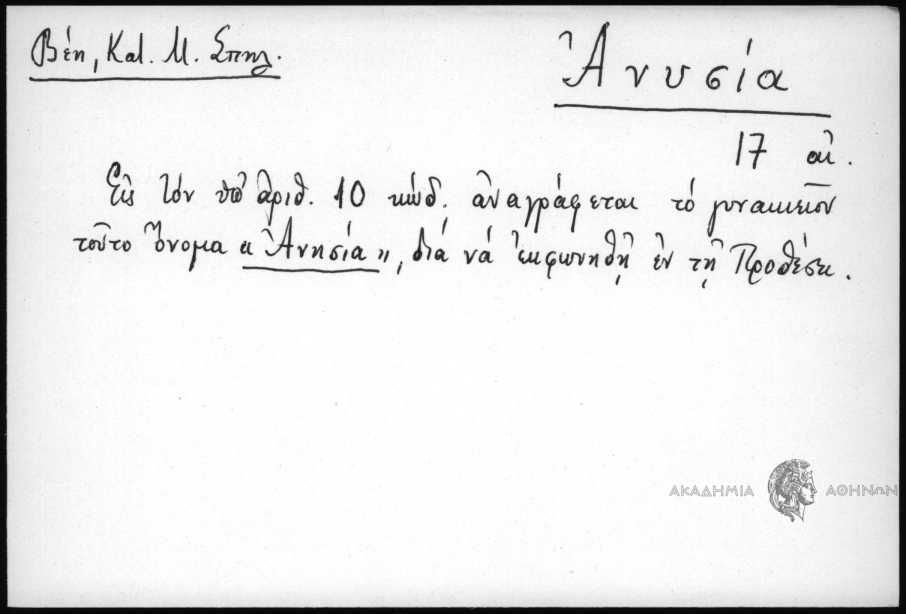 Βέη, Κατ. Μ. Σπηλ.
Ἀνυσία
17 αἰ.
Εἰς τόν ὑπ' ἀριθ. 10 κώδ. ἀναγράφεται τό γυναικεῖον
τοῦτο ὄνομα «Ἀνησία», διά νά ἐκφωνηθῇ ἐν τῇ Προθέσει.
ΑΚΑΔΗΜΙΑ ΑΘΗΝΩΝ